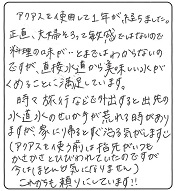 アクアスで使用して1年が、たちました。
正直、夫婦そろって敏感ではないので
料理の味が…とまではわからないの
ですが、直接水道から美味しい水が
くめることに満足しています。
時々旅行などで外出すると出先の
水道水のせいか手が荒れる時があり
ますが、家に帰るとすぐ治る気がします♡
(アクアスで使う前は指先がいつも
かさかさとひびわれていたのですが
今はほとんど気になりません)
これからも頼りにしています!!